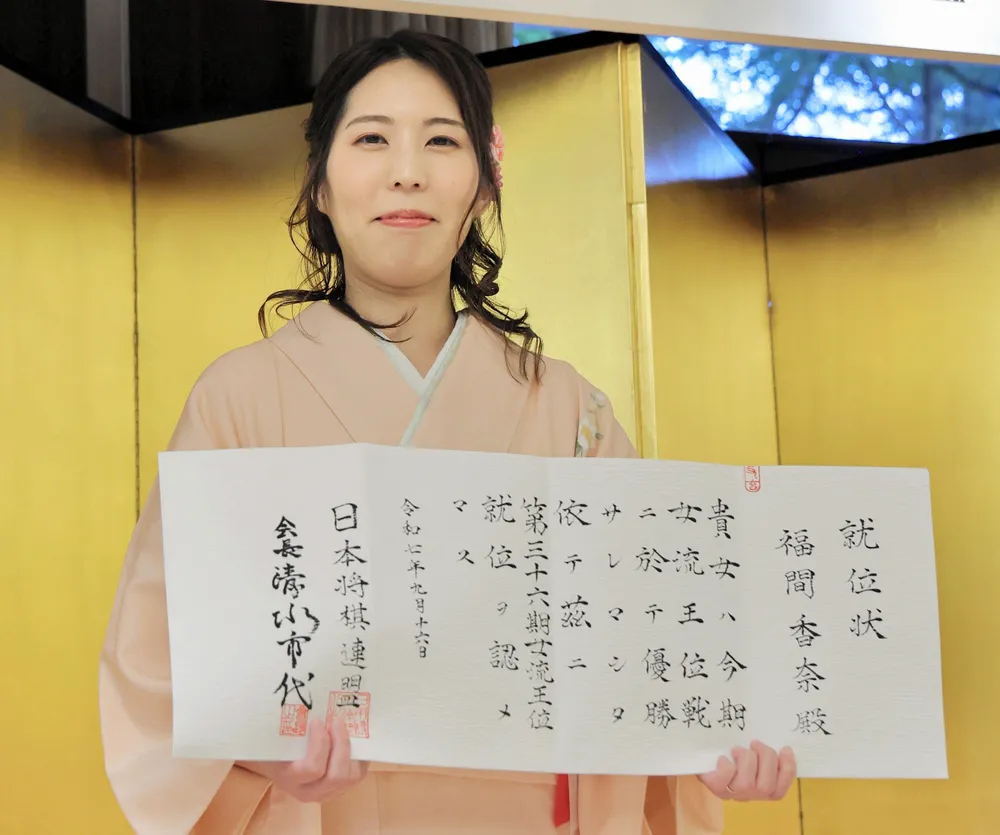 就位状
福間香奈殿
貴女ハ今期
女流王位戦
ニ於テ優勝
サレマシタ
依テ茲ニ
第三十六期女流王位
就位ヲ認メ
マス
令和七年九月十六日
日本将棋連盟
会長清水市代